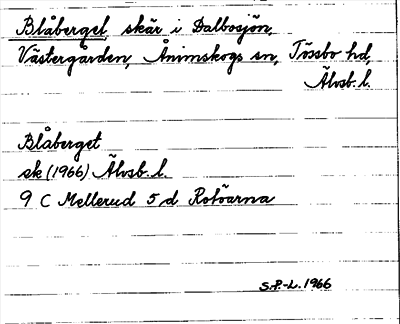 Blåberget, skär i Dalbosjön,
Västergården, Ånimskogs sn, Tössbo hd,
Älvsb. l.
Blåberget
sk (1966) Älvsb. l.
9 C Mellerud 5 d Rotöarna
S.P.-L. 1966